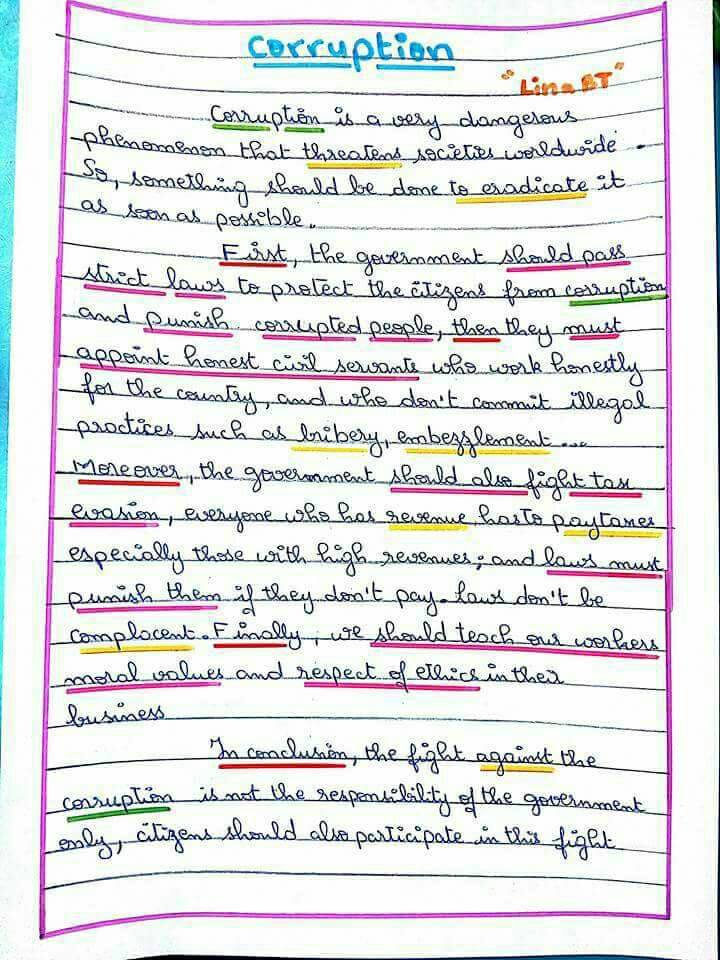 Corruption
"Lina BT"
Corruption is a very dangerous
phenomenon that threatens societies worldwide.
So, something should be done to eradicate it
as soon as possible.
First, the government should pass
strict laws to protect the citizens from corruption
and punish corrupted people, then they must
appoint honest civil servants who work honestly
for the country, and who don't commit illegal
practices such as bribery, embezzlement....
Moreover, the government should also fight tax
evasion, everyone who has revenue has to pay taxes
especially those with high revenues; and laws must
punish them if they don't pay. Laws don't be
complacent. Finally, we should teach our workers
moral values and respect of ethics in their
business
In conclusion, the fight against the
corruption is not the responsibility of the government
only, citizens should also participate in this fight